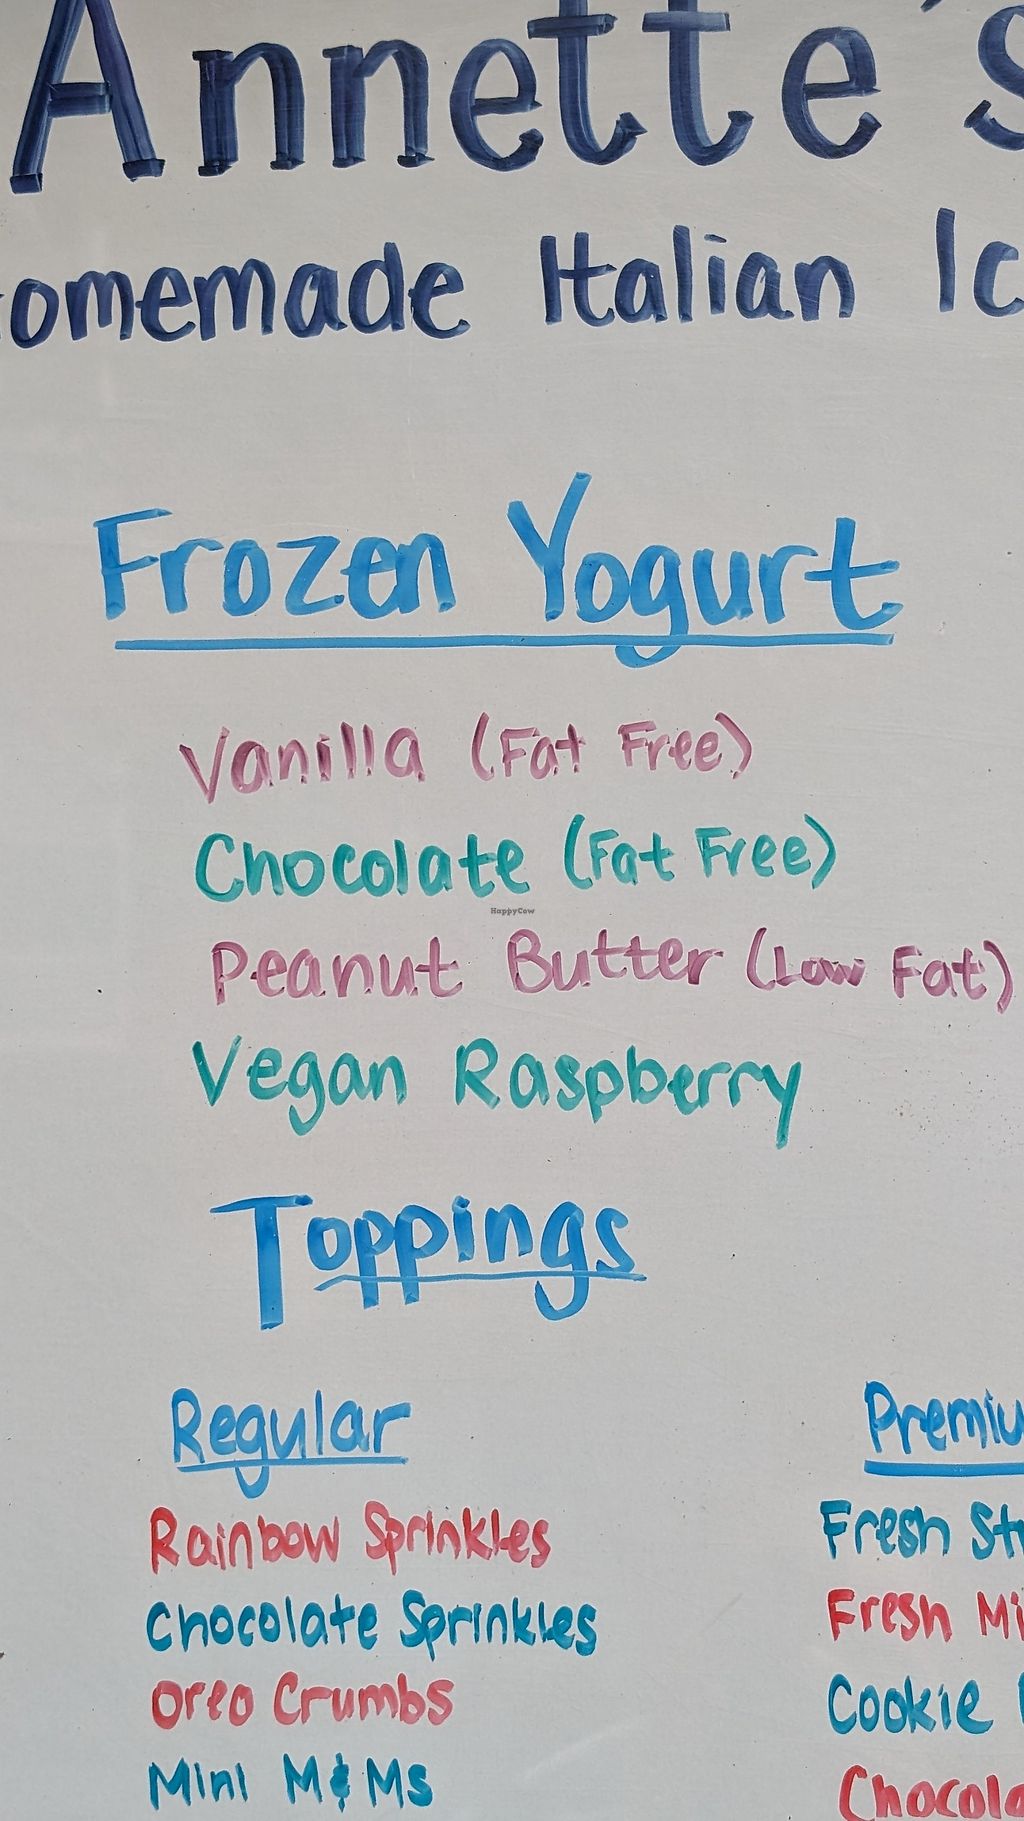 Annette's
omemade Italian Ic
Frozen Yogurt
Vanilla (Fat Free)
Chocolate (Fat Free)
HappyCow
Peanut Butter (Low Fat)
Vegan Raspberry
Toppings
Regular Premiu
Rainbow Sprinkles Fresh Str
Chocolate Sprinkles Fresh Mi
Oreo Crumbs Cookie
Mini M&Ms Chocola